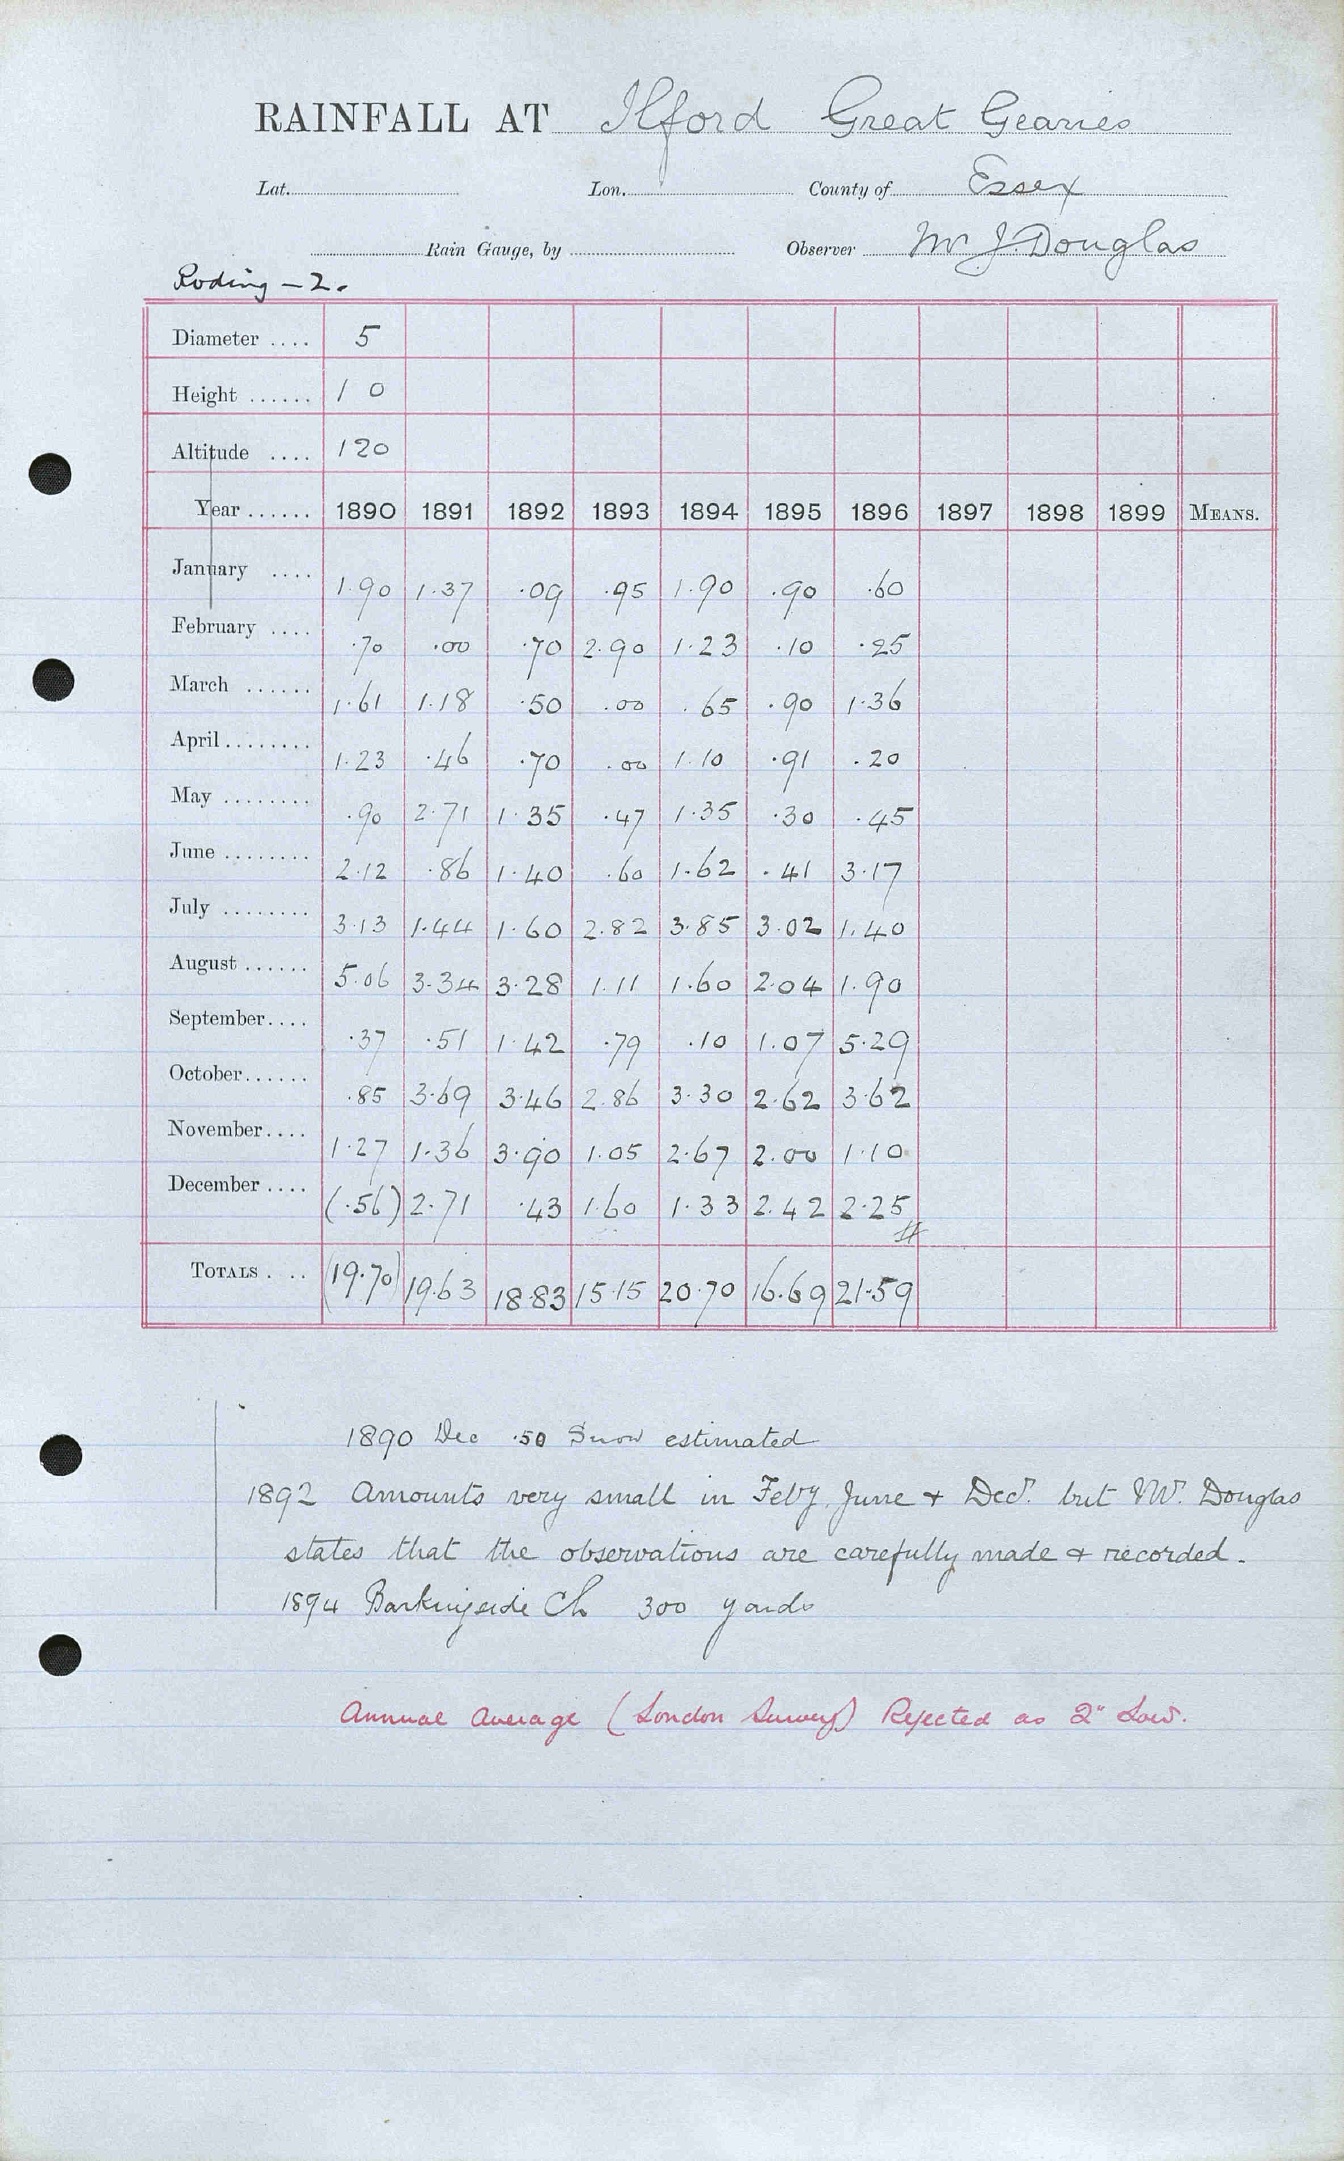 RAINFALL AT Ilford Great Gearies
Lat. Lon. County of Essex
Rain Gauge, by Observer Mr J. Douglas
Roding – 2.
Diameter .... 5
Height ...... 1 0
Altitude .... 120
Year ...... 1890 1891 1892 1893 1894 1895 1896 1897 1898 1899 MEANS.
January .... 1.90 1.37 .09 .95 1.90 .90 .60
February .... .70 .00 .70 2.90 1.23 .10 .25
March ...... 1.61 1.18 .50 .00 .65 .90 1.36
April ........ 1.23 .46 .70 .00 1.10 .91 .20
May ........ .90 2.71 1.35 .47 1.35 .30 .45
June ........ 2.12 .86 1.40 .60 1.62 .41 3.17
July ........ 3.13 1.44 1.60 2.82 3.85 3.02 1.40
August ...... 5.06 3.34 3.28 1.11 1.60 2.04 1.90
September.... .37 .51 1.42 .79 .10 1.07 5.29
October...... .85 3.69 3.46 2.86 3.30 2.62 3.62
November.... 1.27 1.36 3.90 1.05 2.67 2.00 1.10
December .... (.56) 2.71 .43 1.60 1.33 2.42 2.25
TOTALS . .. (19.70) 19.63 18.83 15.15 20.70 16.69 21.59
1890 Dec .50 Snow estimated
1892 Amounts very small in Feby, June + Decr. but Mr. Douglas
states that the observations are carefully made + recorded.
1894 Barkingside Ch 300 yards
Annual Average (London Survey) Rejected as 2" Low.